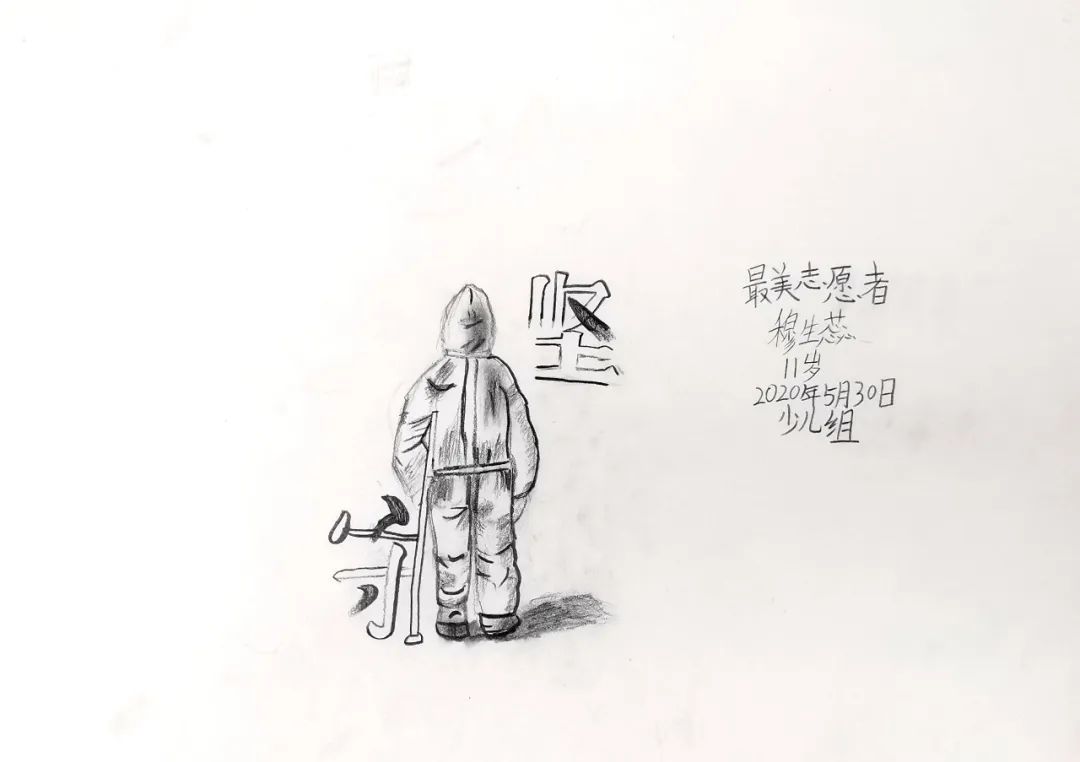 坚
守
最美志愿者
穆生蕊
11岁
2020年5月30日
少儿组